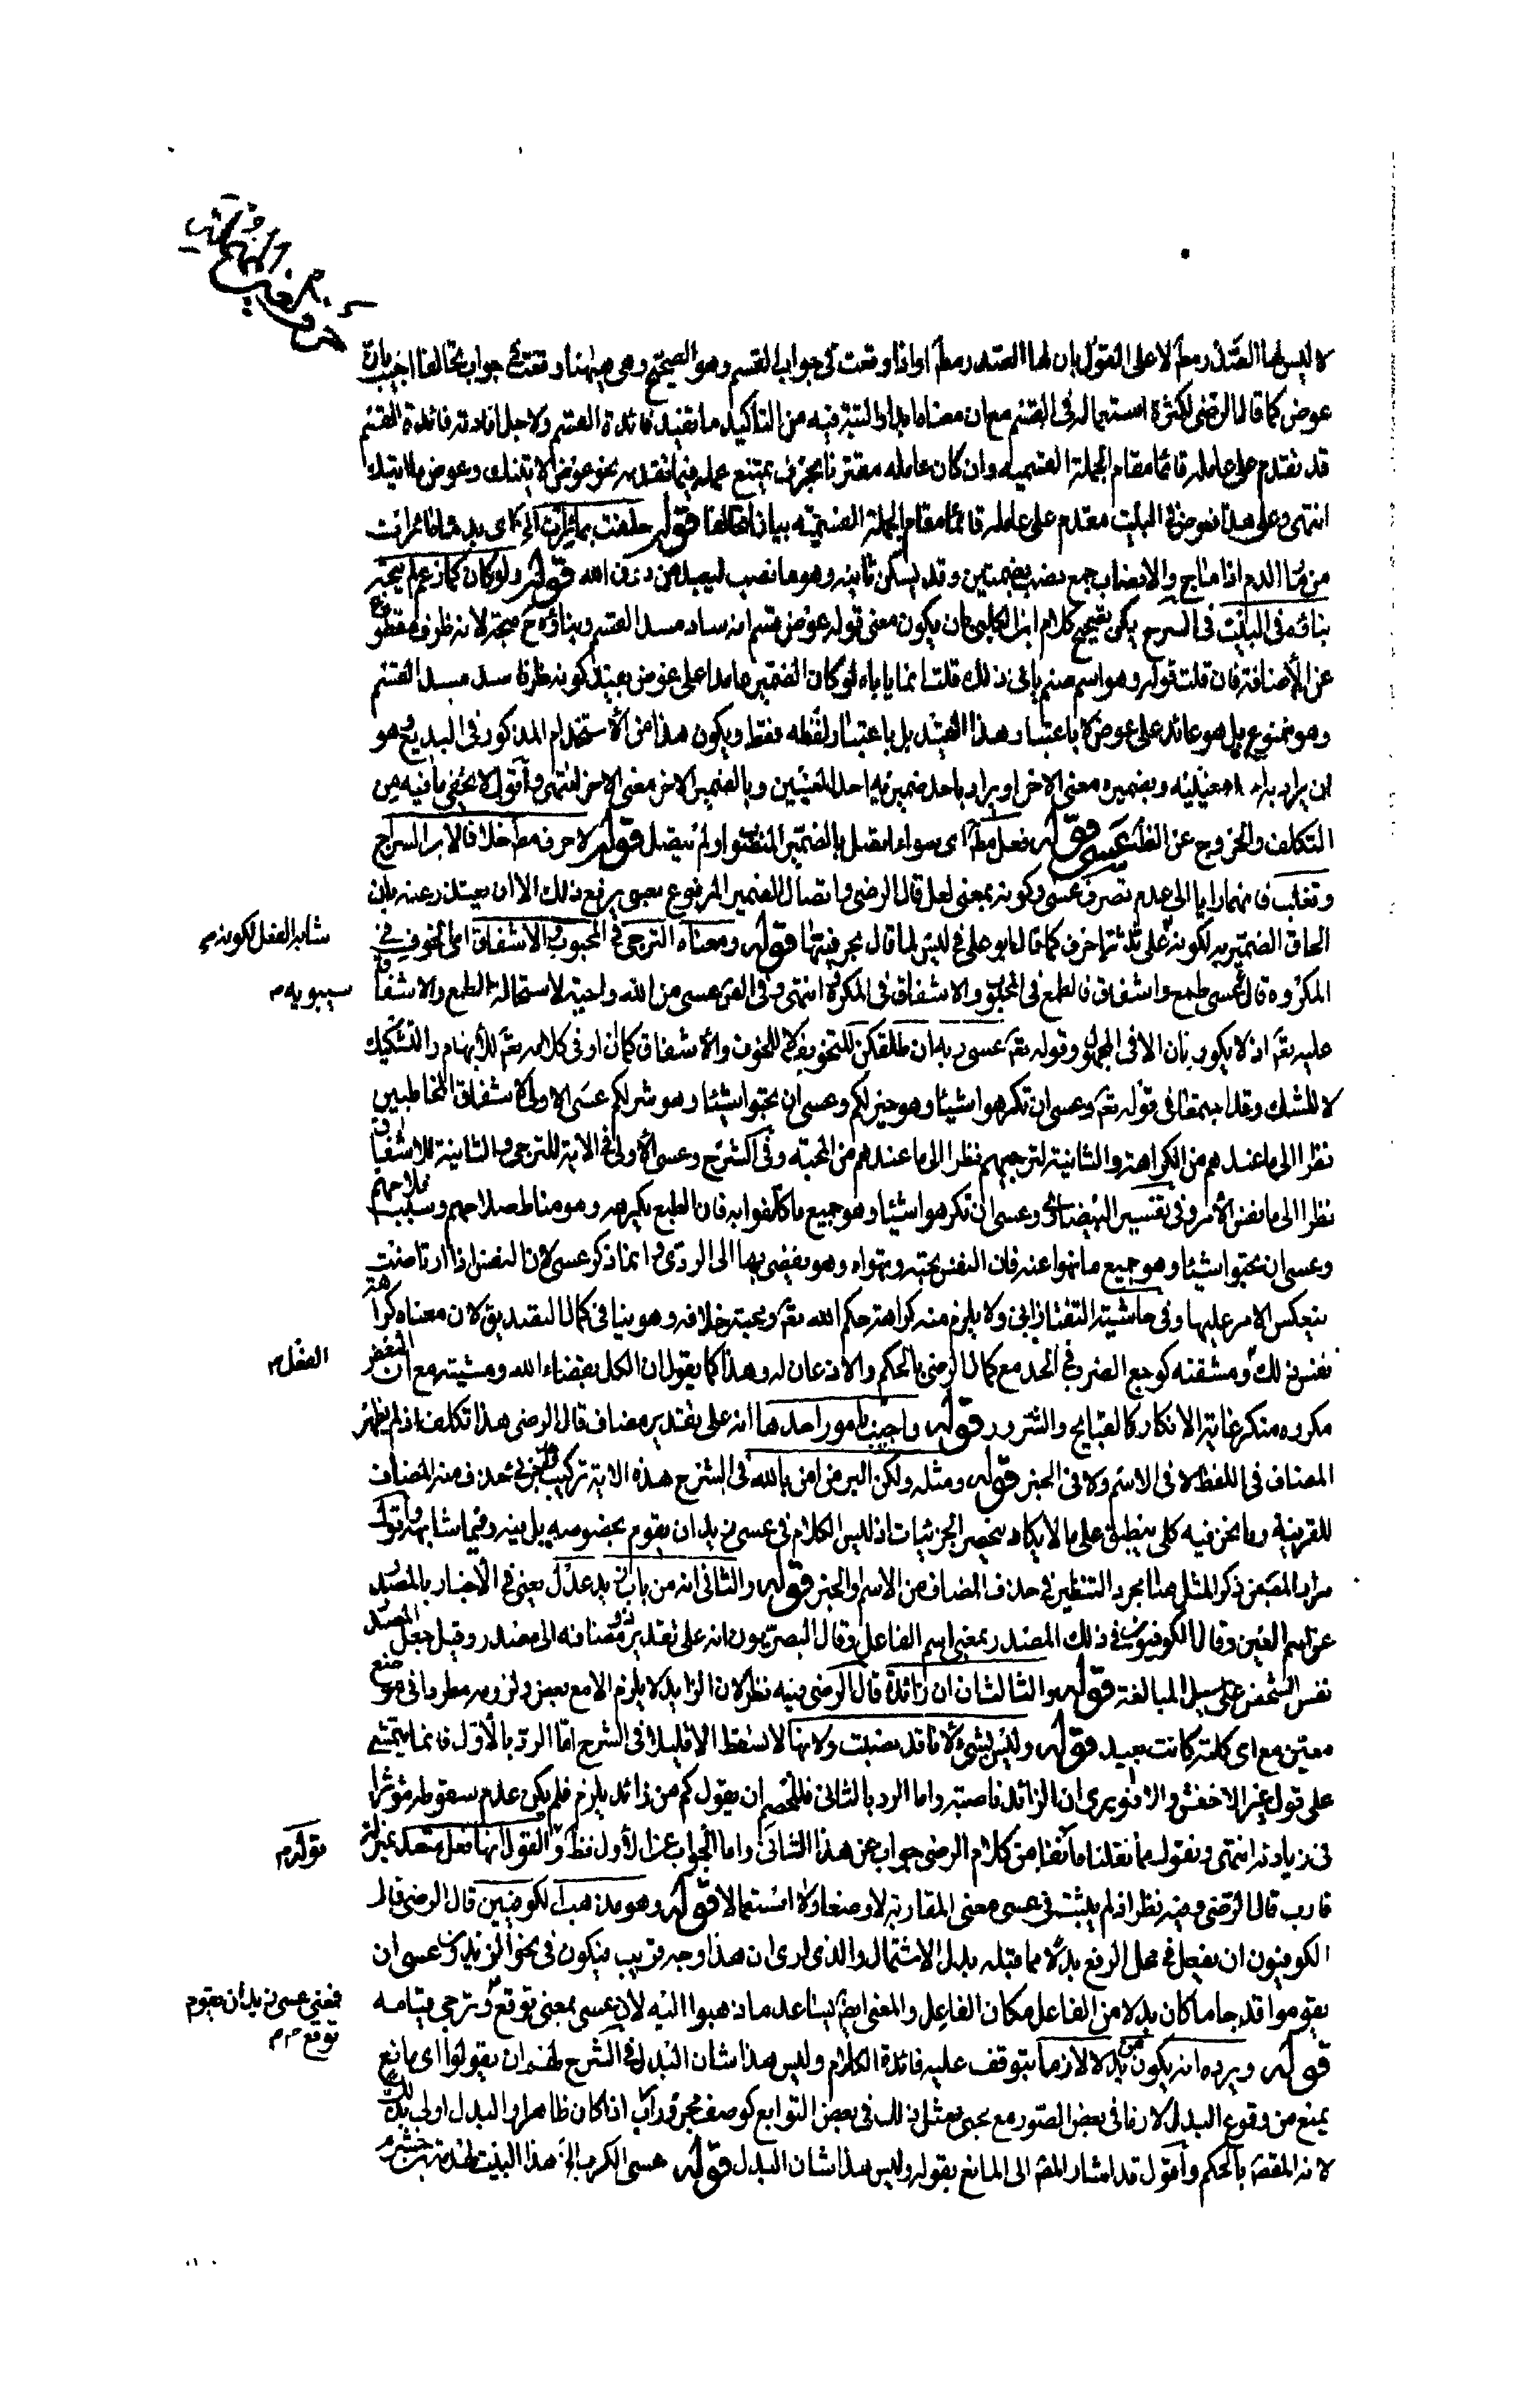 لا ليس لها الصدر مط لا على القول بان لها الصدر مط او اذا وقعت في جواب القسم وهو الصحيح وهى هيهنا وقعت في جواب مخالفا اجيب بان
عوض كما قال الرضي لكثرة استعماله في القسم مع ان معناه ابدا والتبة فيه من التاكيد ما يفيد فائدة القسم ولاجل افادته فائدة القسم
قد نقدم على عامله قائما مقام الجملة القسميه وان كان عامله مقترنا بحرف يمتنع عمله فيما نقدمه نحو عوض لا اتينك وعوض ما اتيتك
انتهى وعلى هذا فعوض في البيت مقدم على عامله قائما مقام الجملة القسميته بيانا قوله حلفت بمائرات الخ اى بدماء مائرات
من مار الدم اذا ماج والانصاب جمع نصب بضمتين وقد يسكن ثانيه وهو ما نصب ليعبد من دون الله قوله ولو كان كما زعم لم يتجه
بنائه في البيت في الشرح يمكن تصحيح كلام ابن الكلبي بان يكون معنى قوله عوض قسم انه ساد مسد القسم وبناؤه ح متجه لانه ظرف مقطوع
عن الاضافة فان قلت قوله وهو اسم صنم يابى ذلك قلت انما ياباه لو كان الضمير عائدا على عوض بقيد كونه ظرفا سد مسد القسم
وهو ممنوع بل هو عائد على عوض لا باعتبار هذا القيد بل باعتبار لفظه فقط ويكون هذا من الاستخدام المذكور في البديع وهو
ان يراد باحد معنييه وبضميره معنى الاخر او يراد باحد ضميريه احد المعنيين وبالضمير الاخر معنى الاخر انتهى واقول لا يخفى ما فيه من
التكلف والخروج عن الظ عسى قوله فعل مط اى سواء اتصل بالضمير المنصوب او لم يتصل قوله لا حرف مط خلافا لابن السراج
وتغلب فانهما رايا الى عدم تصرف عسى وكونه بمعنى لعل قال الرضي واتصال الضمير المرفوع بعسى يرفع ذلك الا ان يعتذر عنه بان
الحاق الضمير به لكونه على ثلثة احرف كما قال ابو علي في ليس لما قال بحرفيتها قوله ومعناه الترجى في المحبوب والاشفاق اى الخوف في
شابه الفعل لكونه م
المكروه قال عسى طمع واشفاق فالطمع في المحبوب والاشفاق في المكروه انتهى وفى القرن عسى من الله واجبة لاستحالة الطمع والاشفاق
سيبويه م
عليه تع اذ لا يكونان الا في المجهول وقوله تع عسى ربه ان طلقكن للتخويف لا للخوف والاشفاق كما ان او في كلامه تع للابهام والتشكيك
لا للشك وقد اجتمعتا في قوله تع وعسى ان تكرهوا شيئا وهو خير لكم وعسى ان تحبوا شيئا وهو شر لكم عسى الاولى لاشفاق المخاطبين
نظرا الى ما عندهم من الكراهة والثانية لترجيهم نظرا الى ما عندهم من المحبة وفى الشرح وعسى الاولى في الاية للترجى والثانية للاشفاق
نظرا الى ما نفس الامر وفى تفسير البيضاوى وعسى ان تكرهوا شيئا وهو جميع ما كلفوا به فان الطبع يكرهه وهو مناط صلاحهم وسبب فلاحهم
وعسى ان تحبوا شيئا وهو جميع ما نهوا عنه فان النفس تحبه وتهواه وهو يفضى بها الى الردى وانما ذكر عسى لان النفس اذا ارتاضت
ينعكس الامر عليها وفى حاشية التفتازانى ولا يلزم منه كراهة حكم الله تع ومحبة خلافه وهو ينافى كمال التصديق لان معناه كراهة
نفس ذلك ومشقته كوجع الضرب في الحد مع كمال الرضى بالحكم والاذعان له وهذا كما يقول ان الكل بقضاء الله ومشيته مع ان البعض
الفعل م
مكروه منكر غاية الانكار كالقبايح والشرور قوله واجيب بامور احدها انه على تقدير مضاف قال الرضى هذا تكلف اذ لم يظهر
المضاف في اللفظ لا في الاسم ولا في الخبر قوله ومثله ولكن البر من امن بالله في الشرح هذه الاية تركيب جزئى حذف منه المضاف
للقرينة وما نحن فيه كلى ينطبق على ما لا يكاد ينحصر الجزئيات اذ ليس الكلام في عسى زيد ان يقوم بخصوصه بل فيه وفيما شابهه واقول
مراد المص من ذكر المثل هنا مجرد التنظير في حذف المضاف من الاسم والخبر قوله والثانى انه من باب زيد عدل يعنى في الاخبار بالمصدر
عن اسم العين وقال الكوفيون في ذلك المصدر بمعنى اسم الفاعل وقال البصريون انه على تقدير ذو مضافة الى مصدر وقيل جعل المصدر
نفس الشخص على سبيل المبالغة قوله والثالث ان ان زائدة قال الرضى فيه نظر لان الزايد لا يلزم الا مع بعض ولزومه مطردا في موضع
معين مع اى كلمة كانت بعيد قوله وليس بشىء لانها قد نصبت ولانها لا تسقط الا قليلا في الشرح اما الرد بالاول فانما يتمشى
على قول غير الاخفش والا فهو يرى ان الزائد ناصبة واما الرد بالثانى فللخصم ان يقول كم من زائد يلزم فلم يكن عدم سقوطه مؤثرا
في زيادته انتهى ونقول ما نقلنا آنفا من كلام الرضى جواب عن هذا الثانى واما الجواب عن الاول فظ والقول انها فعل متعد بمنزلة
قوله م
قارب قال الرضى وفيه نظر اذ لم يثبت في عسى معنى المقاربة لا وضعا ولا استعمالا قوله وهو مذهب الكوفيين قال الرضى قال
الكوفيون ان يفعل في محل الرفع بدلا مما قبله بدل الاشتمال والذى ارى ان هذا وجه قريب فيكون في نحو الزيدون عسى ان
يقوموا قد جاء ما كان بدلا من الفاعل مكان الفاعل والمعنى ايض يساعد ما ذهبوا اليه لان عسى بمعنى توقع وترجى قيامه
فمعنى عسى زيد ان يقوم
توقع م م
قوله ويرده انه يكون ح بدلا لازما يتوقف عليه فائدة الكلام وليس هذا شان البدل في الشرح لهم ان يقولوا اى مانع
يمنع من وقوع البدل لازما في بعض الصور مع مجى مثل ذلك في بعض التوابع كوصف مجرور رب اذا كان ظاهرا والبدل اولى بذلك
لانه المقصد بالحكم واقول قد اشار المص الى المانع بقوله وليس هذا شان البدل قوله عسى الكرب الخ هذا البيت لهدبة بن خشرم